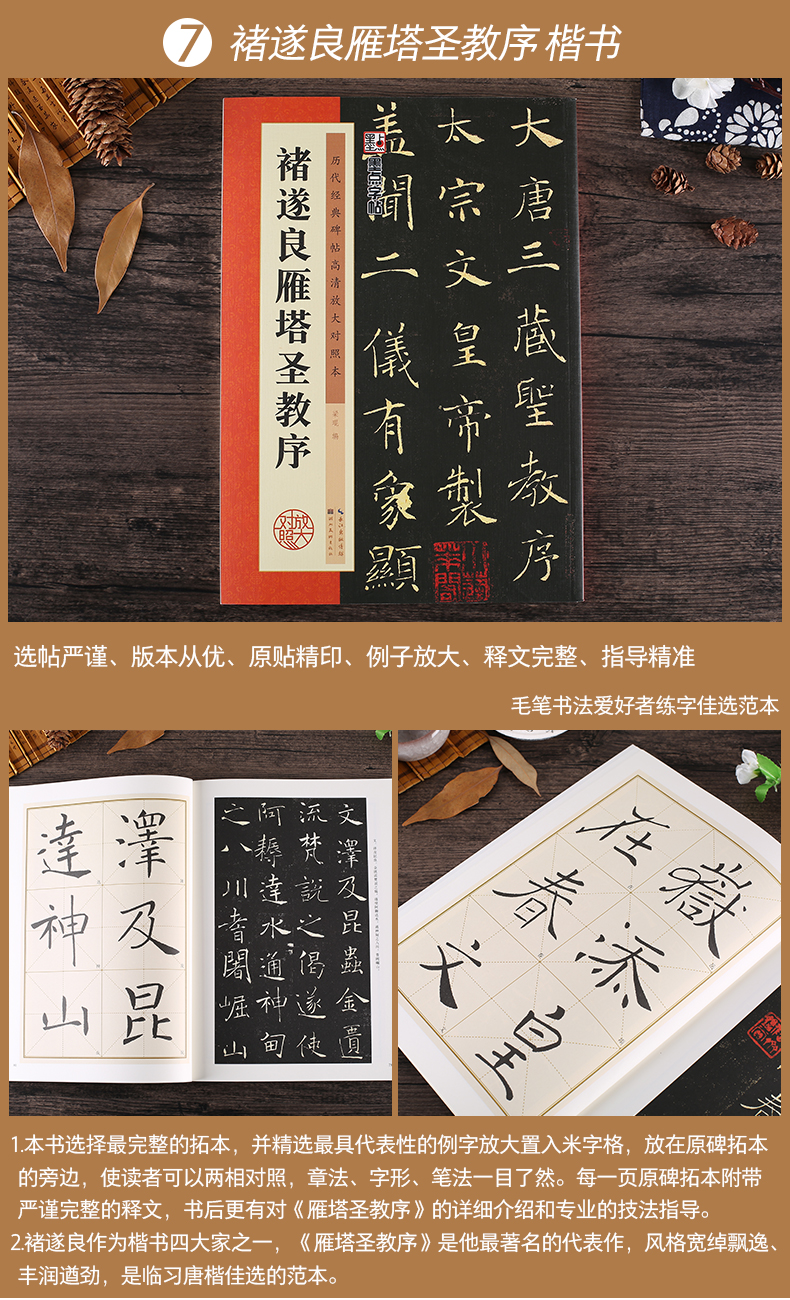 7 褚遂良雁塔圣教序 楷书
历代经典碑帖高清放大对照本
褚遂良雁塔圣教序
梁琨 编
放大对照
墨点
墨点字帖
大唐三藏聖教序
太宗文皇帝製
盖聞二儀有象顯
选帖严谨、版本从优、原贴精印、例子放大、释文完整、指导精准
毛笔书法爱好者练字佳选范本
澤及昆
達神山
文澤及昆蟲金匱
流梵說之偈遂使
阿耨達水通神甸
之八川耆闍崛山
嶽添皇
在春文
1.本书选择最完整的拓本，并精选最具代表性的例字放大置入米字格，放在原碑拓本
的旁边，使读者可以两相对照，章法、字形、笔法一目了然。每一页原碑拓本附带
严谨完整的释文，书后更有对《雁塔圣教序》的详细介绍和专业的技法指导。
2.褚遂良作为楷书四大家之一，《雁塔圣教序》是他最著名的代表作，风格宽绰飘逸、
丰润遒劲，是临习唐楷佳选的范本。